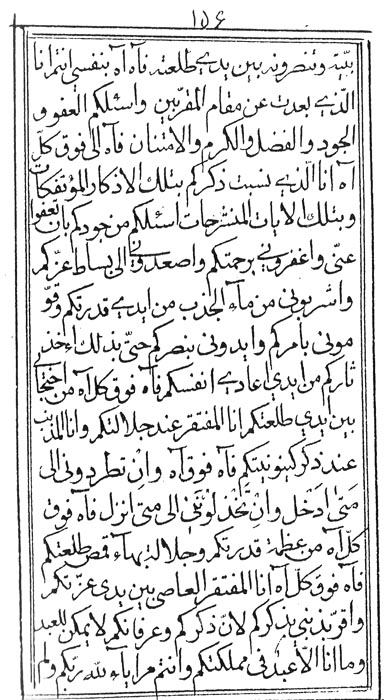 ١٥٤
بيّنه وتنصرونه بين يدي طلعته فآه آه بنفسي انتم انا
الّذي بعدت عن مقام المقرّبين واسئلكم العفو و
الجود والفضل والكرم والامتنان فآه الى فوق كلّ
آه انا الّذي نسبت ذكركم بتلك الاذكار المؤتفكات
وبتلك الايات المنشرحات اسئلكم من جودكم بان تعفوا
عنّى واغفروني برحمتكم واصعدونى الى بساط عزّكم
واشربونى من ماء الجذب من ايدي قدرتكم وقوّ
مونى بامركم وايدونى بنصركم حتّى بذلك اخذ
ثاركم من ايدي اعادي انفسكم فآه فوق كل آه من
بين ايدي طلعتكم انا المفتقر عند جلالتكم وانا المذنب
عند ذكر كينونيتكم فآه فوق آه وان تطردونى الى
متى ادخل وان تخذلونى الى متى انزل فآه فوق
كل آه من عظمة قدرتكم وجلالة بهاء قمص طلعتكم
فآه فوق كل آه انا المفتقر العاصى بين يدي عزّتكم
واقرّ بذنبى بذكركم لان ذكركم وعرفانكم لا يمكن للعبد
وما انا الا عبد فى مملكتكم وانتم مرايا لله ربكم ولم